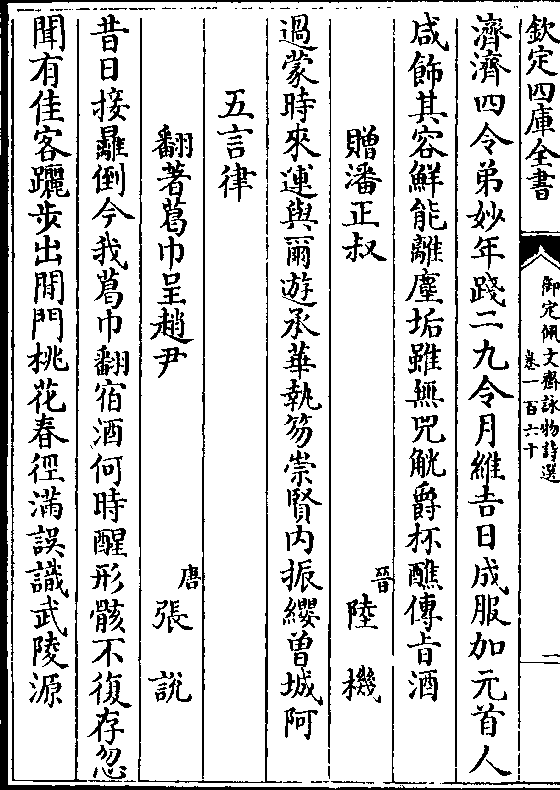 欽定四庫全書
御定佩文齋詠物詩選
卷一百六十
一
濟濟四令弟妙年踐二九令月維吉日成服加元首人
咸飾其容鮮能離塵垢雖無兕觥爵杯醮傳㫖酒
贈潘正叔　晉陸機
過蒙時來運與爾遊承華執笏崇賢内振纓曽城阿
五言律
翻著葛巾呈趙尹　唐張說
昔日接䍦倒今我葛巾翻宿酒何時醒形骸不復存忽
聞有佳客躧步出閒門桃花春徑滿誤識武陵源